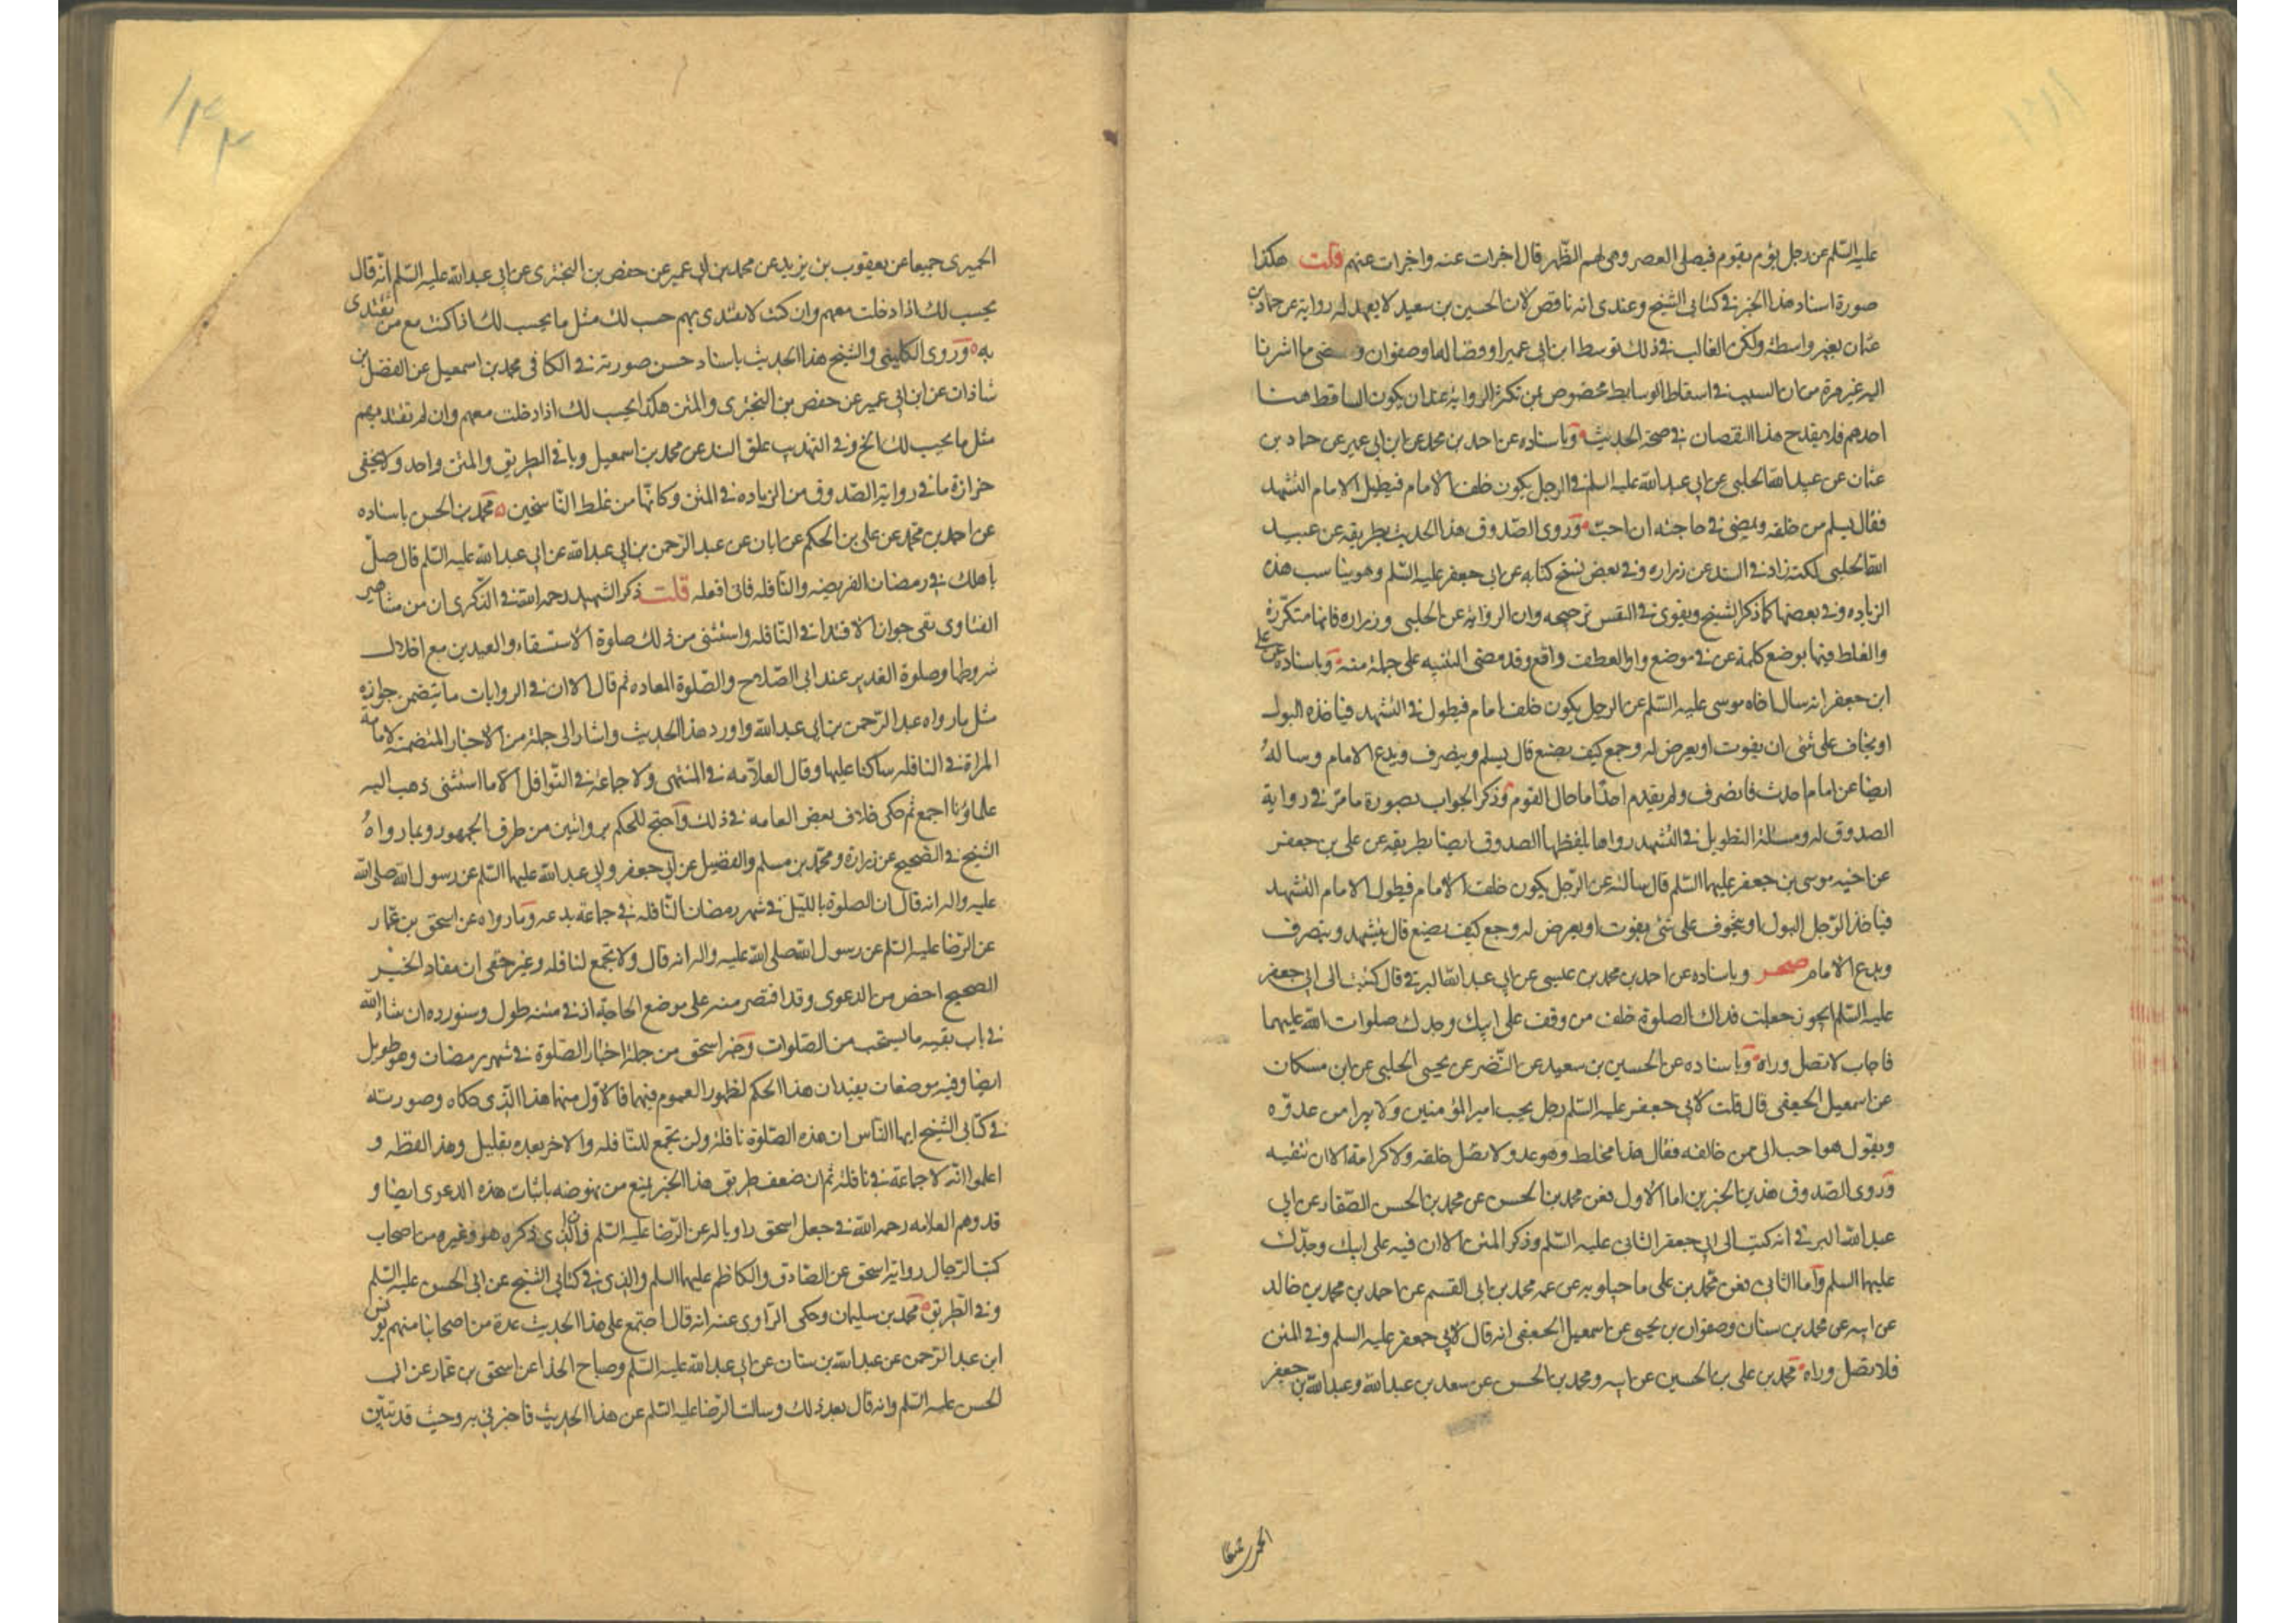 عليه السلم عن رجل يؤم بقوم فيصلي العصر وهي لهم الظهر قال اجزات عنه واجزات عنهم قلت هكذا
صورة اسناد هذا الخبر في كتابي الشيخ وعندي انه ناقص لان الحسين بن سعيد لا يعهد له رواية عن حماد بن
عثمان بغير واسطة ولكن الغالب في ذلك توسط ابن ابي عمير او فضالة او صفوان و ما اشرنا
اليه غير مرة من ان السبب في اسقاط الوسايط مخصوص بمن تكرر الرواية عنه ان يكون الساقط هنا
احدهم فلا يقدح هذا النقصان في صحة الحديث وباسناده عن احمد بن محمد عن ابن ابي عمير عن حماد بن
عثمان عن عبيد الله الحلبي عن ابي عبد الله عليه السلم في الرجل يكون خلف الامام فيطيل الامام التشهد
فقال يسلم من خلفه ويمضي في حاجته ان احب وروى الصدوق هذا الحديث بطريقه عن عبيد
الله الحلبي لكنه زاد في السند عن زراره وفي بعض نسخ كتابه عن ابي جعفر عليه السلم وهو يناسب هذه
الزياده وفي بعضها كما ذكر الشيخ ويقوى في النفس ترجيحه وان الرواية عن الحلبي وزراره فانها متكررة
والغلط فيها بوضع كلمة عن في موضع واو العطف واقع وقد مضى التنبيه على جملة منه وباسناده عن علي
ابن جعفر انه سال اخاه موسى عليه السلم عن الرجل يكون خلف امام فيطول في التشهد فياخذه البول
او يخاف على شئ ان يفوت او يعرض له وجع كيف يصنع قال يسلم وينصرف ويدع الامام وساله
ايضا عن امام احدث فانصرف ولم يقدم احدا ما حال القوم وذكر الجواب بصورة ما مر في رواية
الصدوق له ومسئلة التطويل في التشهد رواها بلفظها الصدوق ايضا بطريقه عن علي بن جعفر
عن اخيه موسى بن جعفر عليهما السلم قال سالته عن الرجل يكون خلف الامام فيطول الامام التشهد
فياخذ الرجل البول او يتخوف على شئ يفوت او يعرض له وجع كيف يصنع قال يتشهد وينصرف
ويدع الامام صحر وباسناده عن احمد بن محمد بن عيسى عن ابي عبد الله البرقي قال كتبت الى ابي جعفر
عليه السلم ايجوز جعلت فداك الصلوة خلف من وقف على ابيك وجدك صلوات الله عليهما
فاجاب لا تصل وراه وباسناده عن الحسين بن سعيد عن النضر عن يحيى الحلبي عن ابن مسكان
عن اسمعيل الجعفي قال قلت لابي جعفر عليه السلم رجل يحب امير المؤمنين ولا يبرا من عدوه
ويقول هو احب الي ممن خالفه فقال هذا مخلط وهو عدو ولا تصل خلفه ولا كرامة الا ان تتقيه
وروى الصدوق هذين الخبرين اما الاول فعن محمد بن الحسن عن محمد بن الحسن الصفار عن ابي
عبد الله البرقي انه كتب الى ابي جعفر الثاني عليه السلم وذكر المتن الا ان فيه على ابيك وجدك
عليهما السلم واما الثاني فعن محمد بن علي ماجيلويه عن عمه محمد بن ابي القسم عن احمد بن محمد بن خالد
عن ابيه عن محمد بن سنان وصفوان بن يحيى عن اسمعيل الجعفي انه قال لابي جعفر عليه السلم وفي المتن
فلا تصل وراه محمد بن علي بن الحسين عن ابيه ومحمد بن الحسن عن سعد بن عبد الله وعبد الله بن جعفر
الحميري جميعا عن يعقوب بن يزيد عن محمد بن ابي عمير عن حفص بن البختري عن ابي عبد الله عليه السلم انه قال
يحسب لك اذا دخلت معهم وان كنت لا تقتدي بهم حسب لك مثل ما يحسب لك اذا كنت مع من تقتدي
به وروى الكليني والشيخ هذا الحديث باسناد حسن صورته في الكافي محمد بن اسمعيل عن الفضل بن
شاذان عن ابن ابي عمير عن حفص بن البختري والمتن هكذا يحسب لك اذا دخلت معهم وان لم تقتد بهم
مثل ما يحسب لك الخ وفي التهذيب علق السند عن محمد بن اسمعيل وباقي الطريق والمتن واحد ولا يخفى
حزازة ما في رواية الصدوق من الزياده في المتن وكانها من غلط الناسخين محمد بن الحسن باسناده
عن احمد بن محمد عن علي بن الحكم عن ابان عن عبد الرحمن بن ابي عبد الله عن ابي عبد الله عليه السلم قال صل
باهلك في رمضان الفريضه والنافله فاني افعله قلت ذكر الشهيد رحمه الله في الذكرى ان من مشاهير
الفتاوى نفي جواز الاقتدا في النافله واستثنى من ذلك صلوة الاستسقاء والعيدين مع اختلال
شروطها وصلوة الغدير عند ابي الصلاح والصلوة المعاده ثم قال الا ان في الروايات ما يتضمن جوازه
مثل ما رواه عبد الرحمن بن ابي عبد الله واورد هذا الحديث واشار الى جملة من الاخبار المتضمنة لامامة
المراة في النافله ساكتا عليها وقال العلامه في المنتهى ولا جماعة في النوافل الا ما استثنى ذهب اليه
علماؤنا اجمع ثم حكى خلاف بعض العامه في ذلك واحتج للحكم بروايتين من طرق الجمهور وبما رواه
الشيخ في الصحيح عن زرارة ومحمد بن مسلم والفضيل عن ابي جعفر وابي عبد الله عليهما السلم عن رسول الله صلى الله
عليه واله انه قال ان الصلوة بالليل في شهر رمضان النافله في جماعة بدعه وما رواه عن اسحق بن عمار
عن الرضا عليه السلم عن رسول الله صلى الله عليه واله انه قال ولا تجمع لنافله وغير خفي ان مفاد الخبر
الصحيح اخص من الدعوى وقد اقتصر منه على موضع الحاجة اذ في متنه طول وسنورده ان شاء الله
في باب بقيه ما يستحب من الصلوات وخبر اسحق من جملة اخبار الصلوة في شهر رمضان وهو طويل
ايضا وفيه موضعان يفيدان هذا الحكم لظهور العموم فيهما فالاول منهما هذا الذي حكاه وصورته
في كتابي الشيخ ايها الناس ان هذه الصلوة نافلة ولن تجمع للنافله والاخر بعده بقليل وهذا لفظه و
اعلموا انه لا جماعة في نافلة ثم ان ضعف طريق هذا الخبر يمنع من نهوضه باثبات هذه الدعوى ايضا و
قد وهم العلامه رحمه الله في جعل اسحق راويا له عن الرضا عليه السلم فان الذي ذكره هو وغيره من اصحاب
كتب الرجال رواية اسحق عن الصادق والكاظم عليهما السلم والذي في كتابي الشيخ عن ابي الحسن عليه السلم
وفي الطريق محمد بن سليمان وحكى الراوي عنه انه قال اجتمع على هذا الحديث عدة من اصحابنا منهم يونس
ابن عبد الرحمن عن عبد الله بن سنان عن ابي عبد الله عليه السلم وصباح الحذا عن اسحق بن عمار عن ابي
الحسن عليه السلم وانه قال بعد ذلك وسالت الرضا عليه السلم عن هذا الحديث فاخبرني به وحيث قد تبين